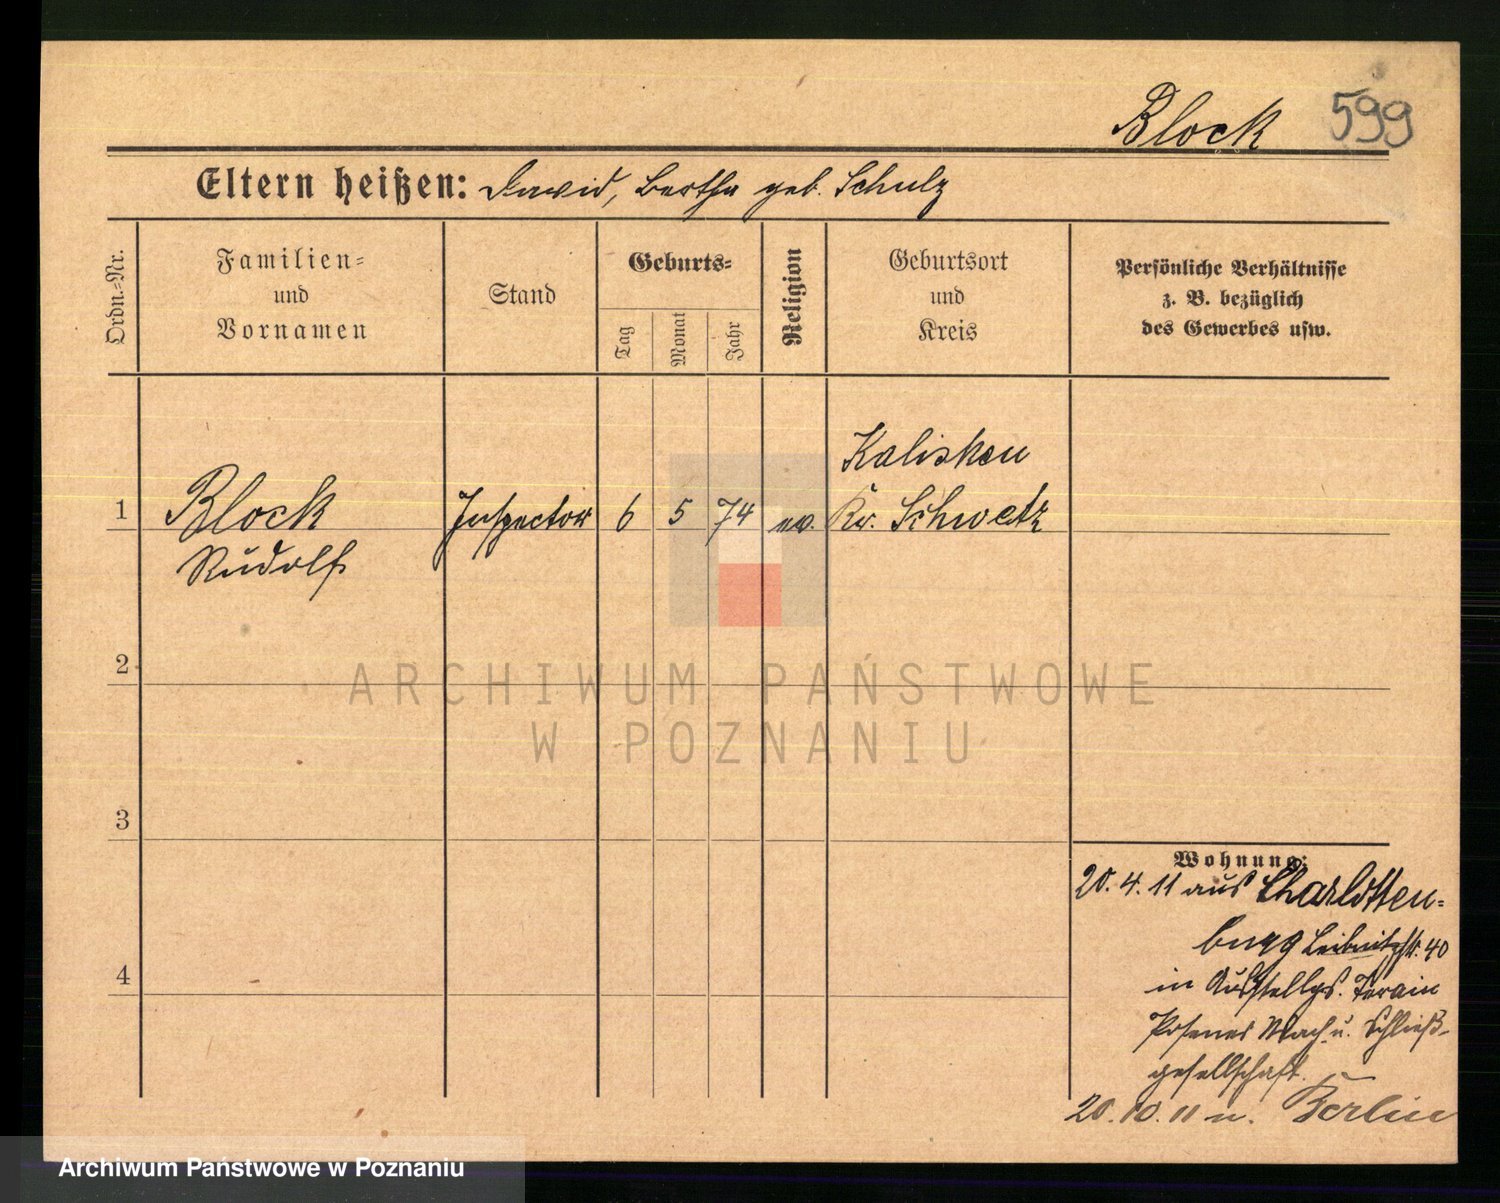 Block 599
Eltern heißen: David, Bertha geb. Schulz
Ordn.-Nr.
Familien-
und
Vornamen
Stand
Geburts-
Tag
Monat
Jahr
Religion
Geburtsort
und
Kreis
Persönliche Verhältnisse
z. B. bezüglich
des Gewerbes usw.
Kalisken
1 Block Inspector 6 5 74 ev. Kr. Schwetz
Rudolf
2
3
4
Wohnung:
20.4.11 aus Charlotten-
burg Leibnitzstr. 40
in Ausstellgs. Terain
Posener Wach u. Schließ-
gesellschaft.
20.10.11 n. Berlin
ARCHIWUM PAŃSTWOWE
W POZNANIU
Archiwum Państwowe w Poznaniu